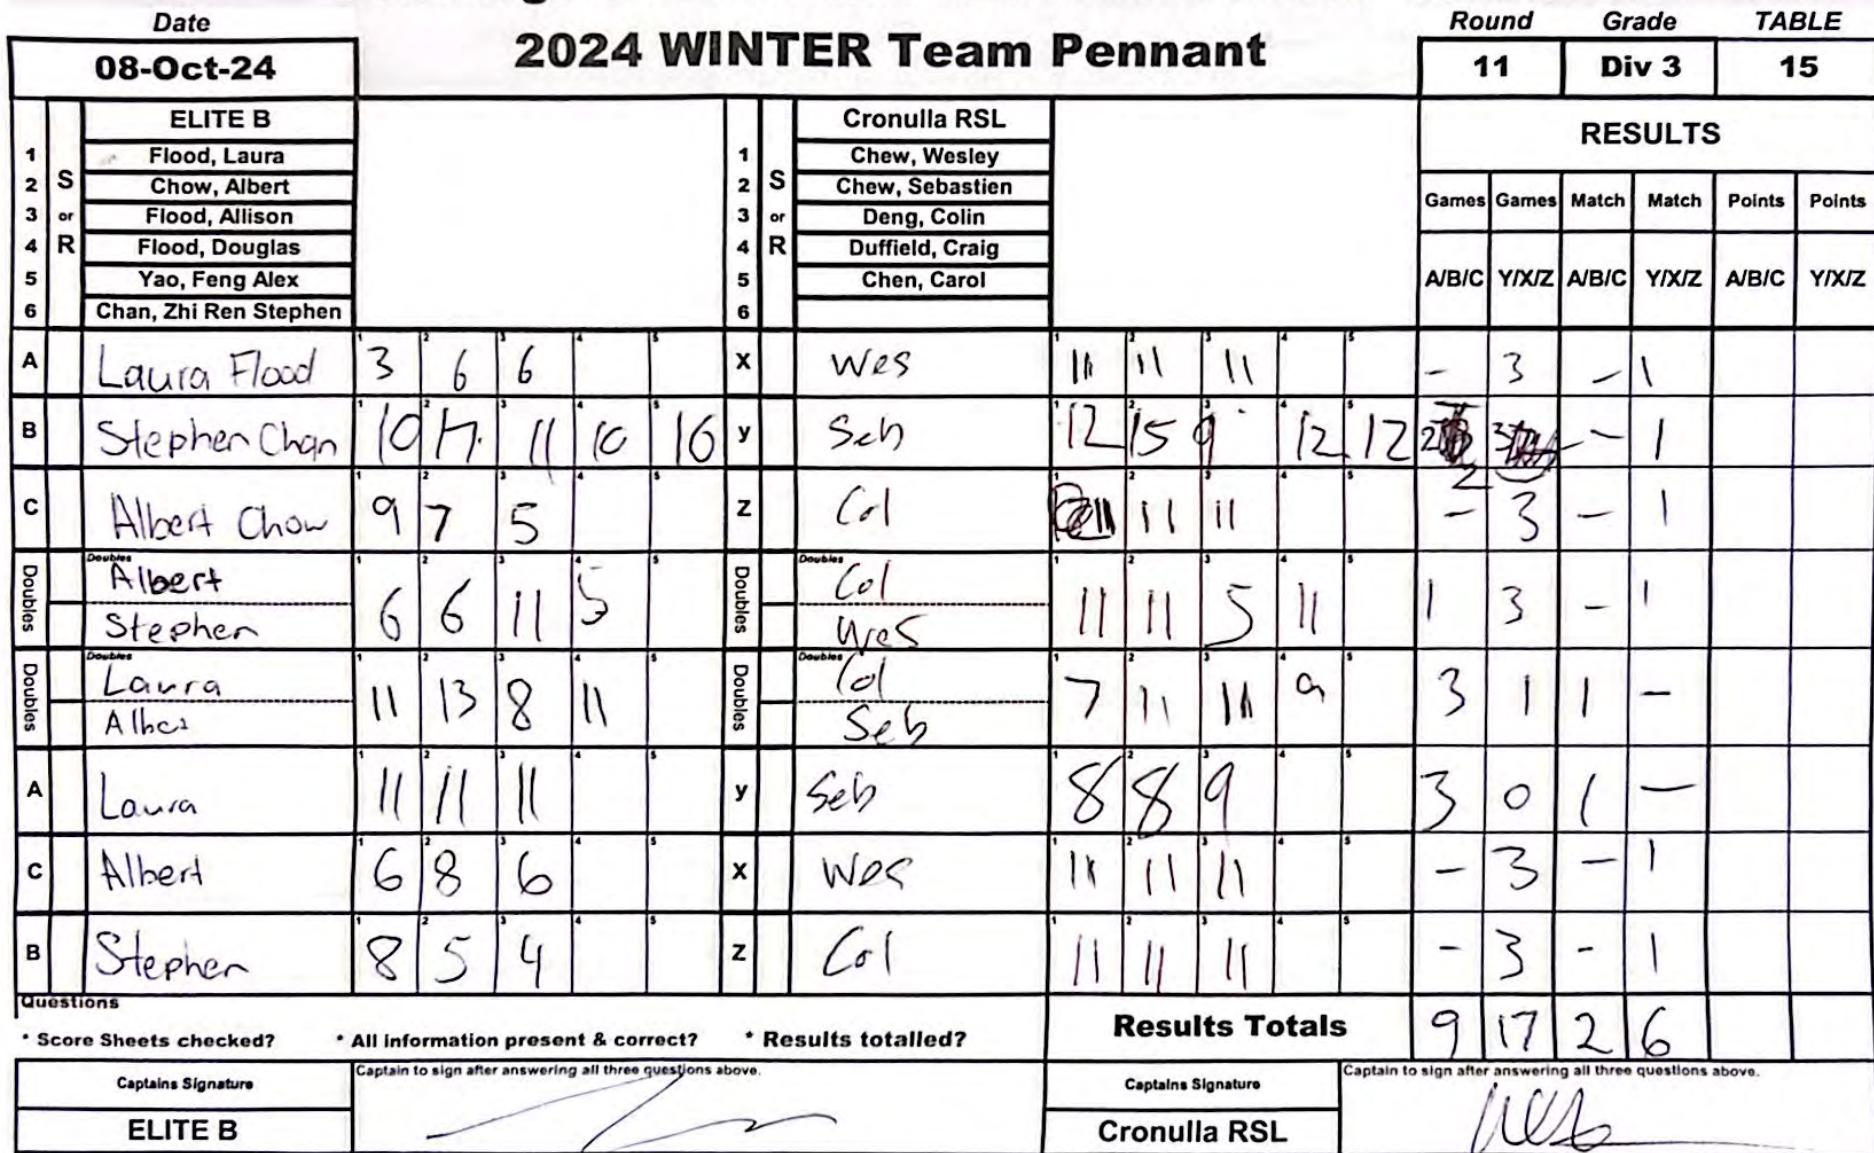 Date
08-Oct-24
2024 WINTER Team Pennant
Round Grade TABLE
11 Div 3 15
ELITE B
1 Flood, Laura
2 Chow, Albert
3 Flood, Allison
4 Flood, Douglas
5 Yao, Feng Alex
6 Chan, Zhi Ren Stephen
S or R
Cronulla RSL
1 Chew, Wesley
2 Chew, Sebastien
3 Deng, Colin
4 Duffield, Craig
5 Chen, Carol
6
S or R
RESULTS
Games Games Match Match Points Points
A/B/C Y/X/Z A/B/C Y/X/Z A/B/C Y/X/Z
A Laura Flood 3 6 6 X Wes 11 11 11 - 3 - 1
B Stephen Chan 10 11 10 y Seb 12 15 9 12 12 2 3 - 1
C Albert Chow 9 7 5 Z Col 11 11 11 - 3 - 1
Doubles Albert 6 6 11 5 Doubles Col 11 11 5 11 1 3 - 1
Stephen Wes
Doubles Laura 11 13 8 11 Doubles Col 7 11 11 9 3 1 1 -
Seb
A Laura 11 11 11 y Seb 8 8 9 3 0 1 -
C Albert 6 8 6 X Wes 11 11 11 - 3 - 1
B Stephen 8 5 4 Z Col 11 11 11 - 3 - 1
Questions
* Score Sheets checked? * All information present & correct? * Results totalled?
Results Totals 9 17 2 6
Captains Signature Captain to sign after answering all three questions above.
ELITE B
Captains Signature Captain to sign after answering all three questions above.
Cronulla RSL